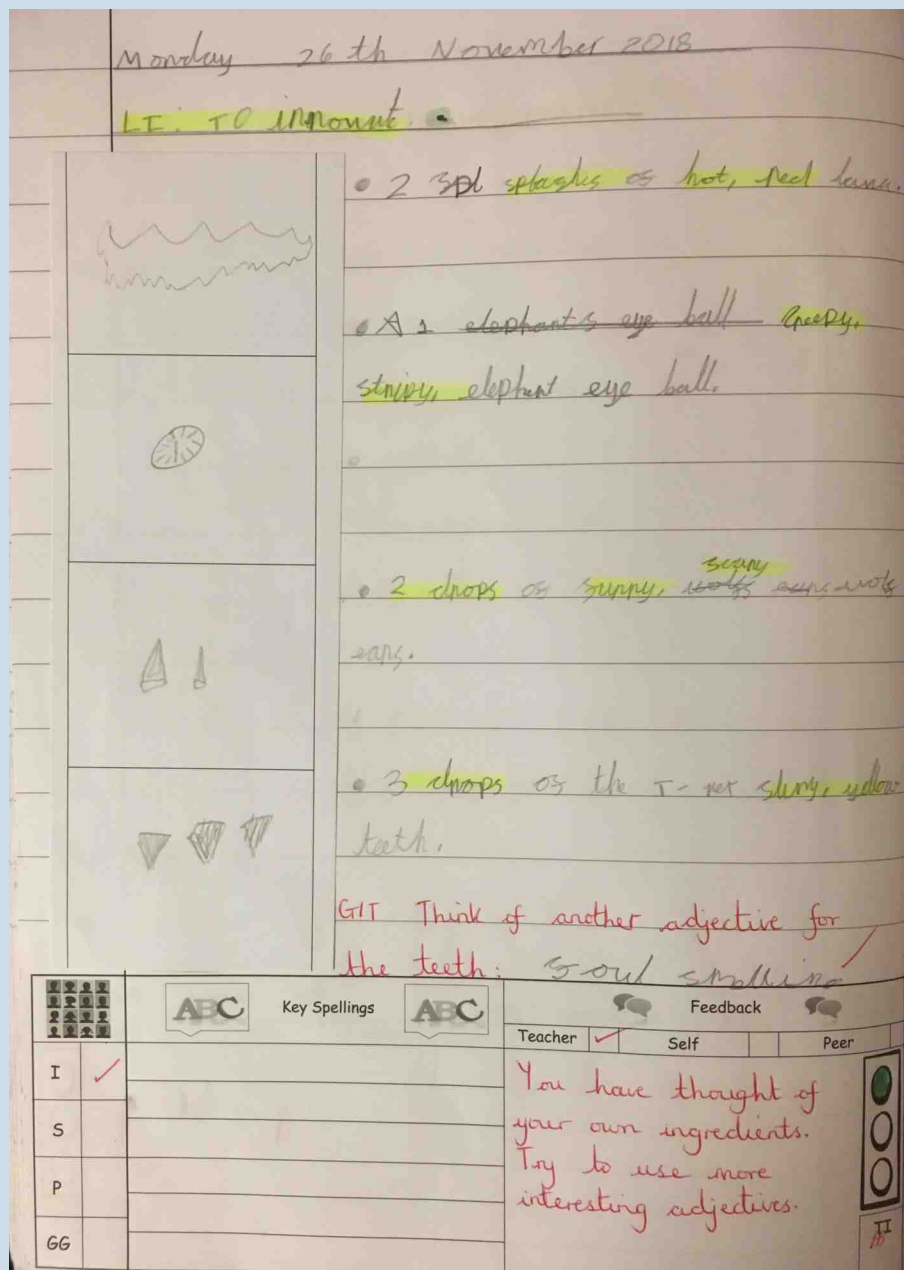 Monday 26th November 2018
LI: TO innovate.
• 2 spl splashes of hot, red lava.
• A 1 elephant's eye ball creepy,
stripy, elephant eye ball.
scary
• 2 drops of furry, wolfs ears wolf
ears.
• 3 drops of the T-rex slimy, yellow
teeth.
GIT Think of another adjective for
the teeth: foul smelling
ABC Key Spellings ABC
Feedback
Teacher Self Peer
I
S
P
GG
You have thought of
your own ingredients.
Try to use more
interesting adjectives.